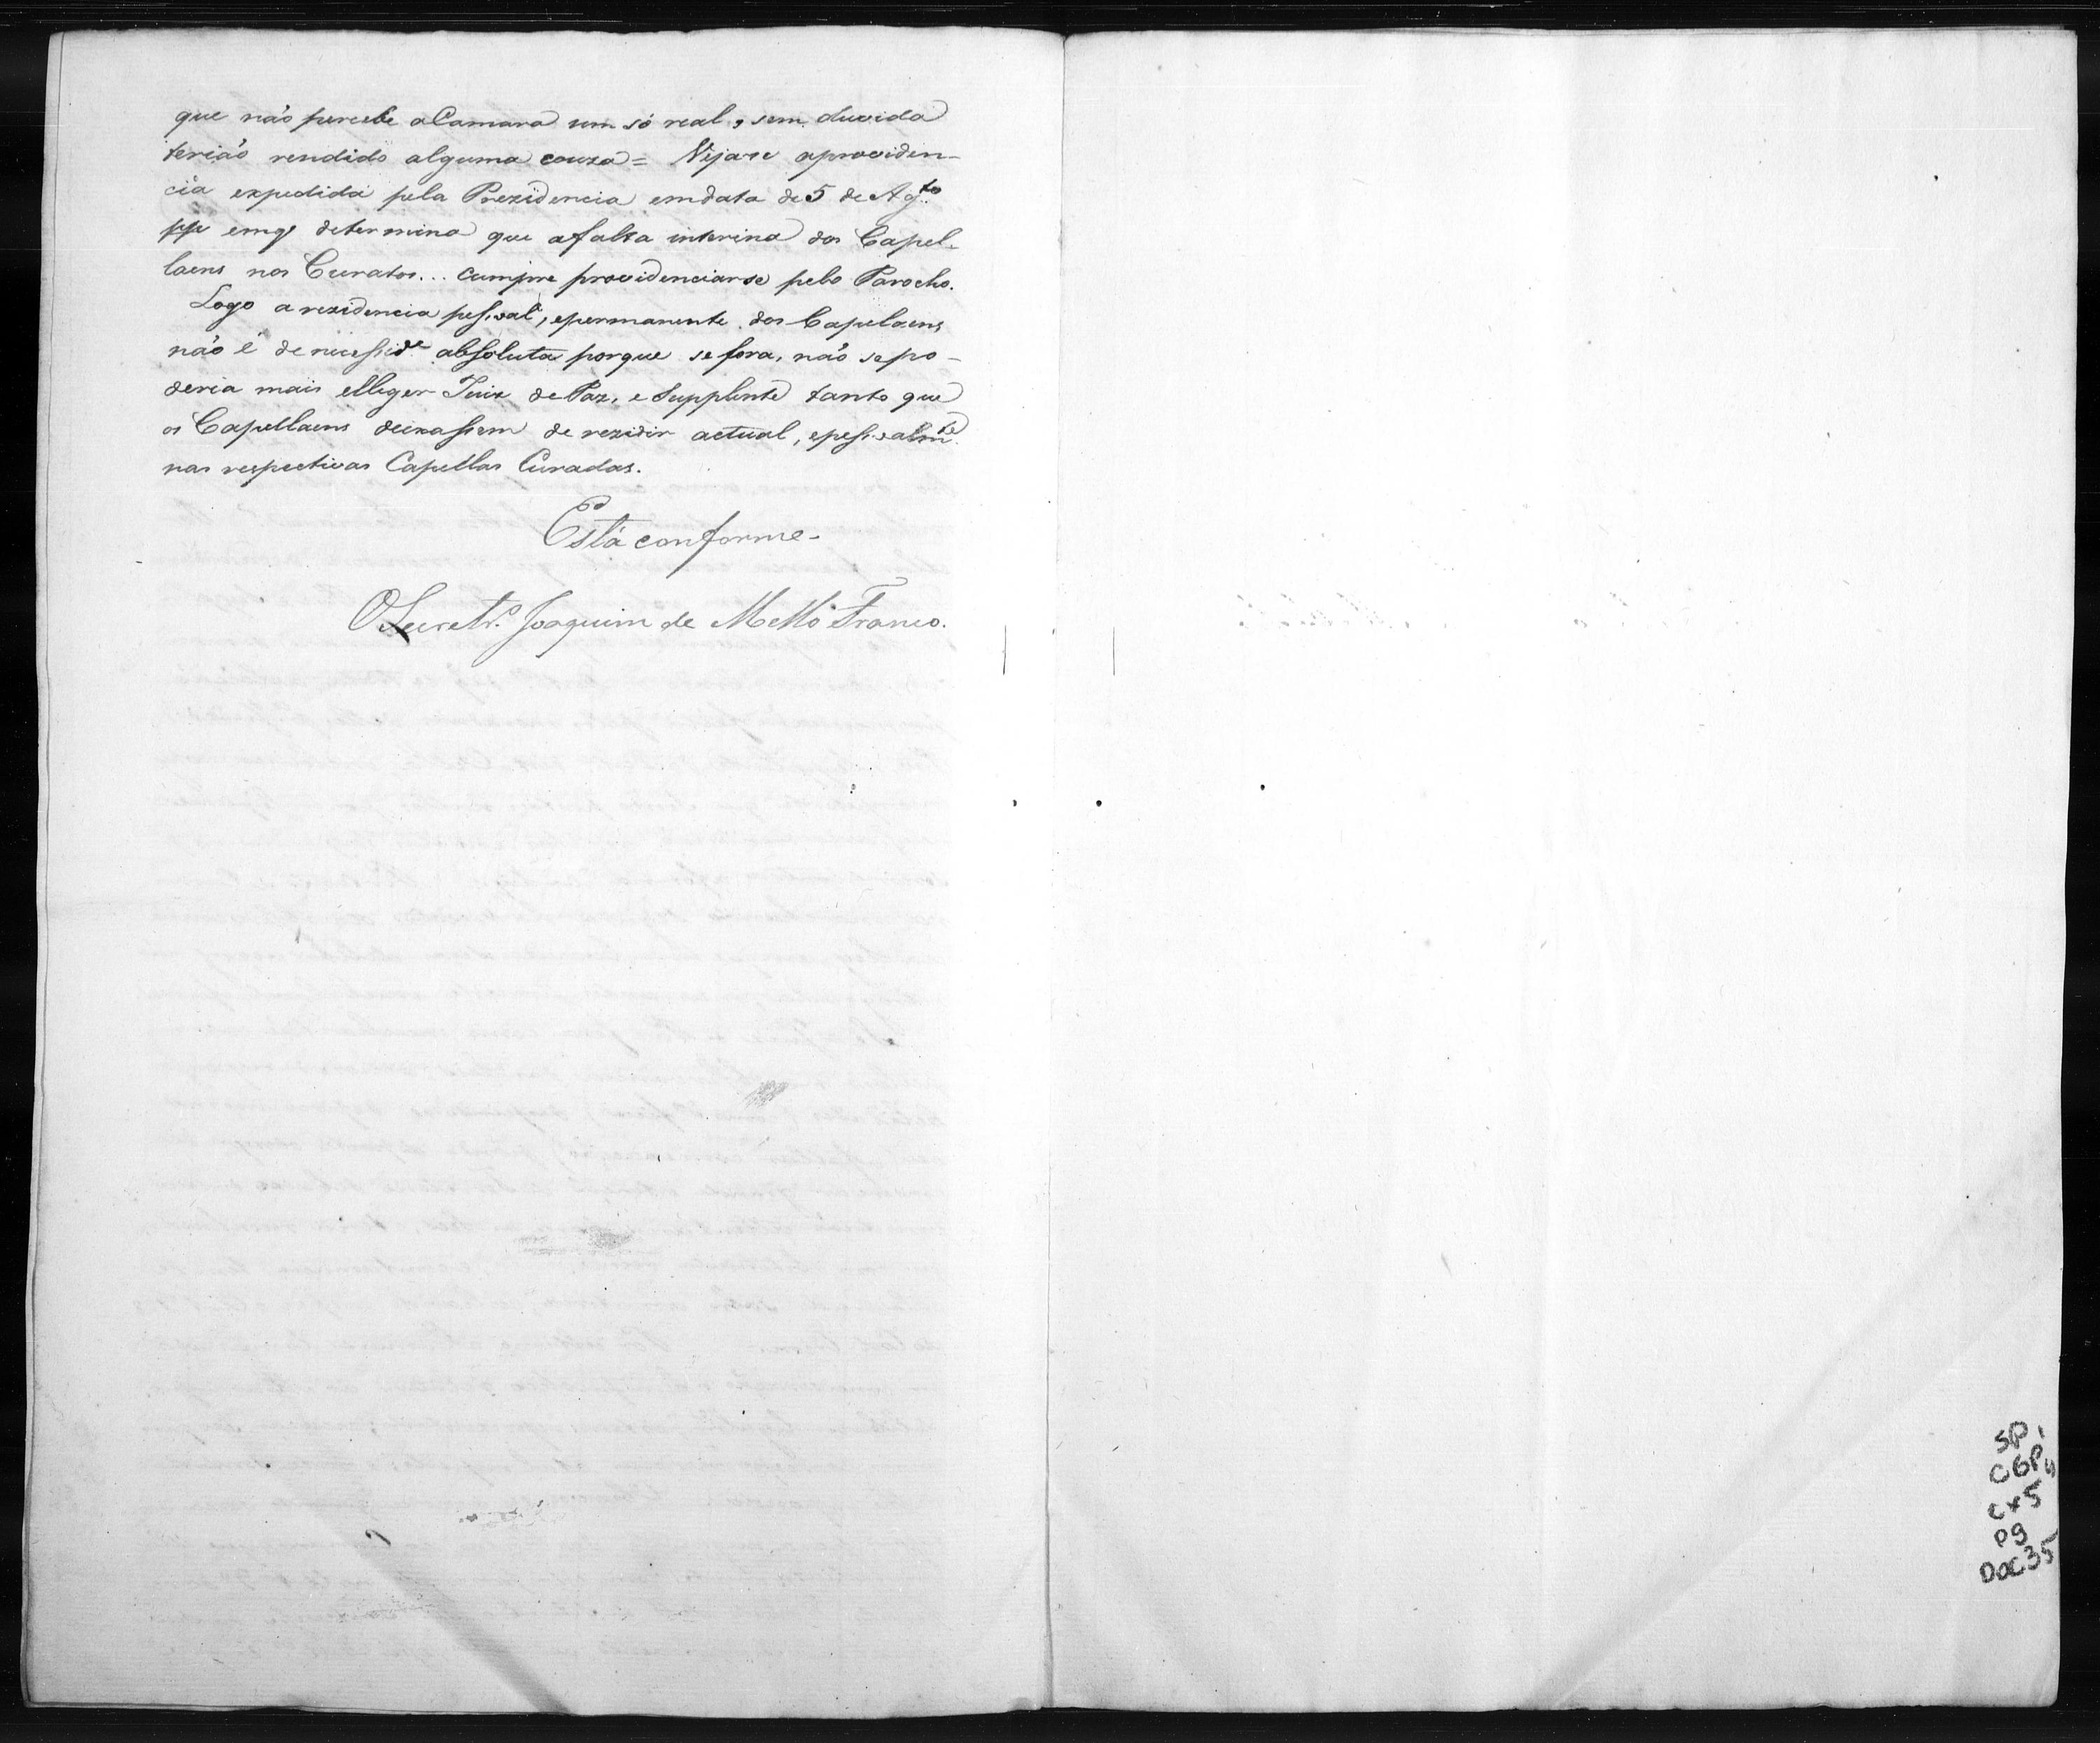 que não percebe a Camara um só real, sem duvida
terião rendido alguma couza = Vejase aproviden-
cia expedida pela Prezidencia emdata de 5 de Ag.to
pp emq' determina que afalta interina dos Capel-
laens nos Curatos... cumpre providenciarse pelo Parocho.
Logo a rezidencia pessoal, epermanente dos Capelaens
não é de necessid.e absoluta porque se fora, não sepo-
deria mais elleger Juiz de Paz, e Supplente tanto que
os Capellaens deixassem de rezidir actual, epessoalm.te
nas respectivas Capellas Curadas.
Está conforme-
O Secretr.o Joaquim de Mello Franco.
SP
CGP
Cx5
P9
DOC35